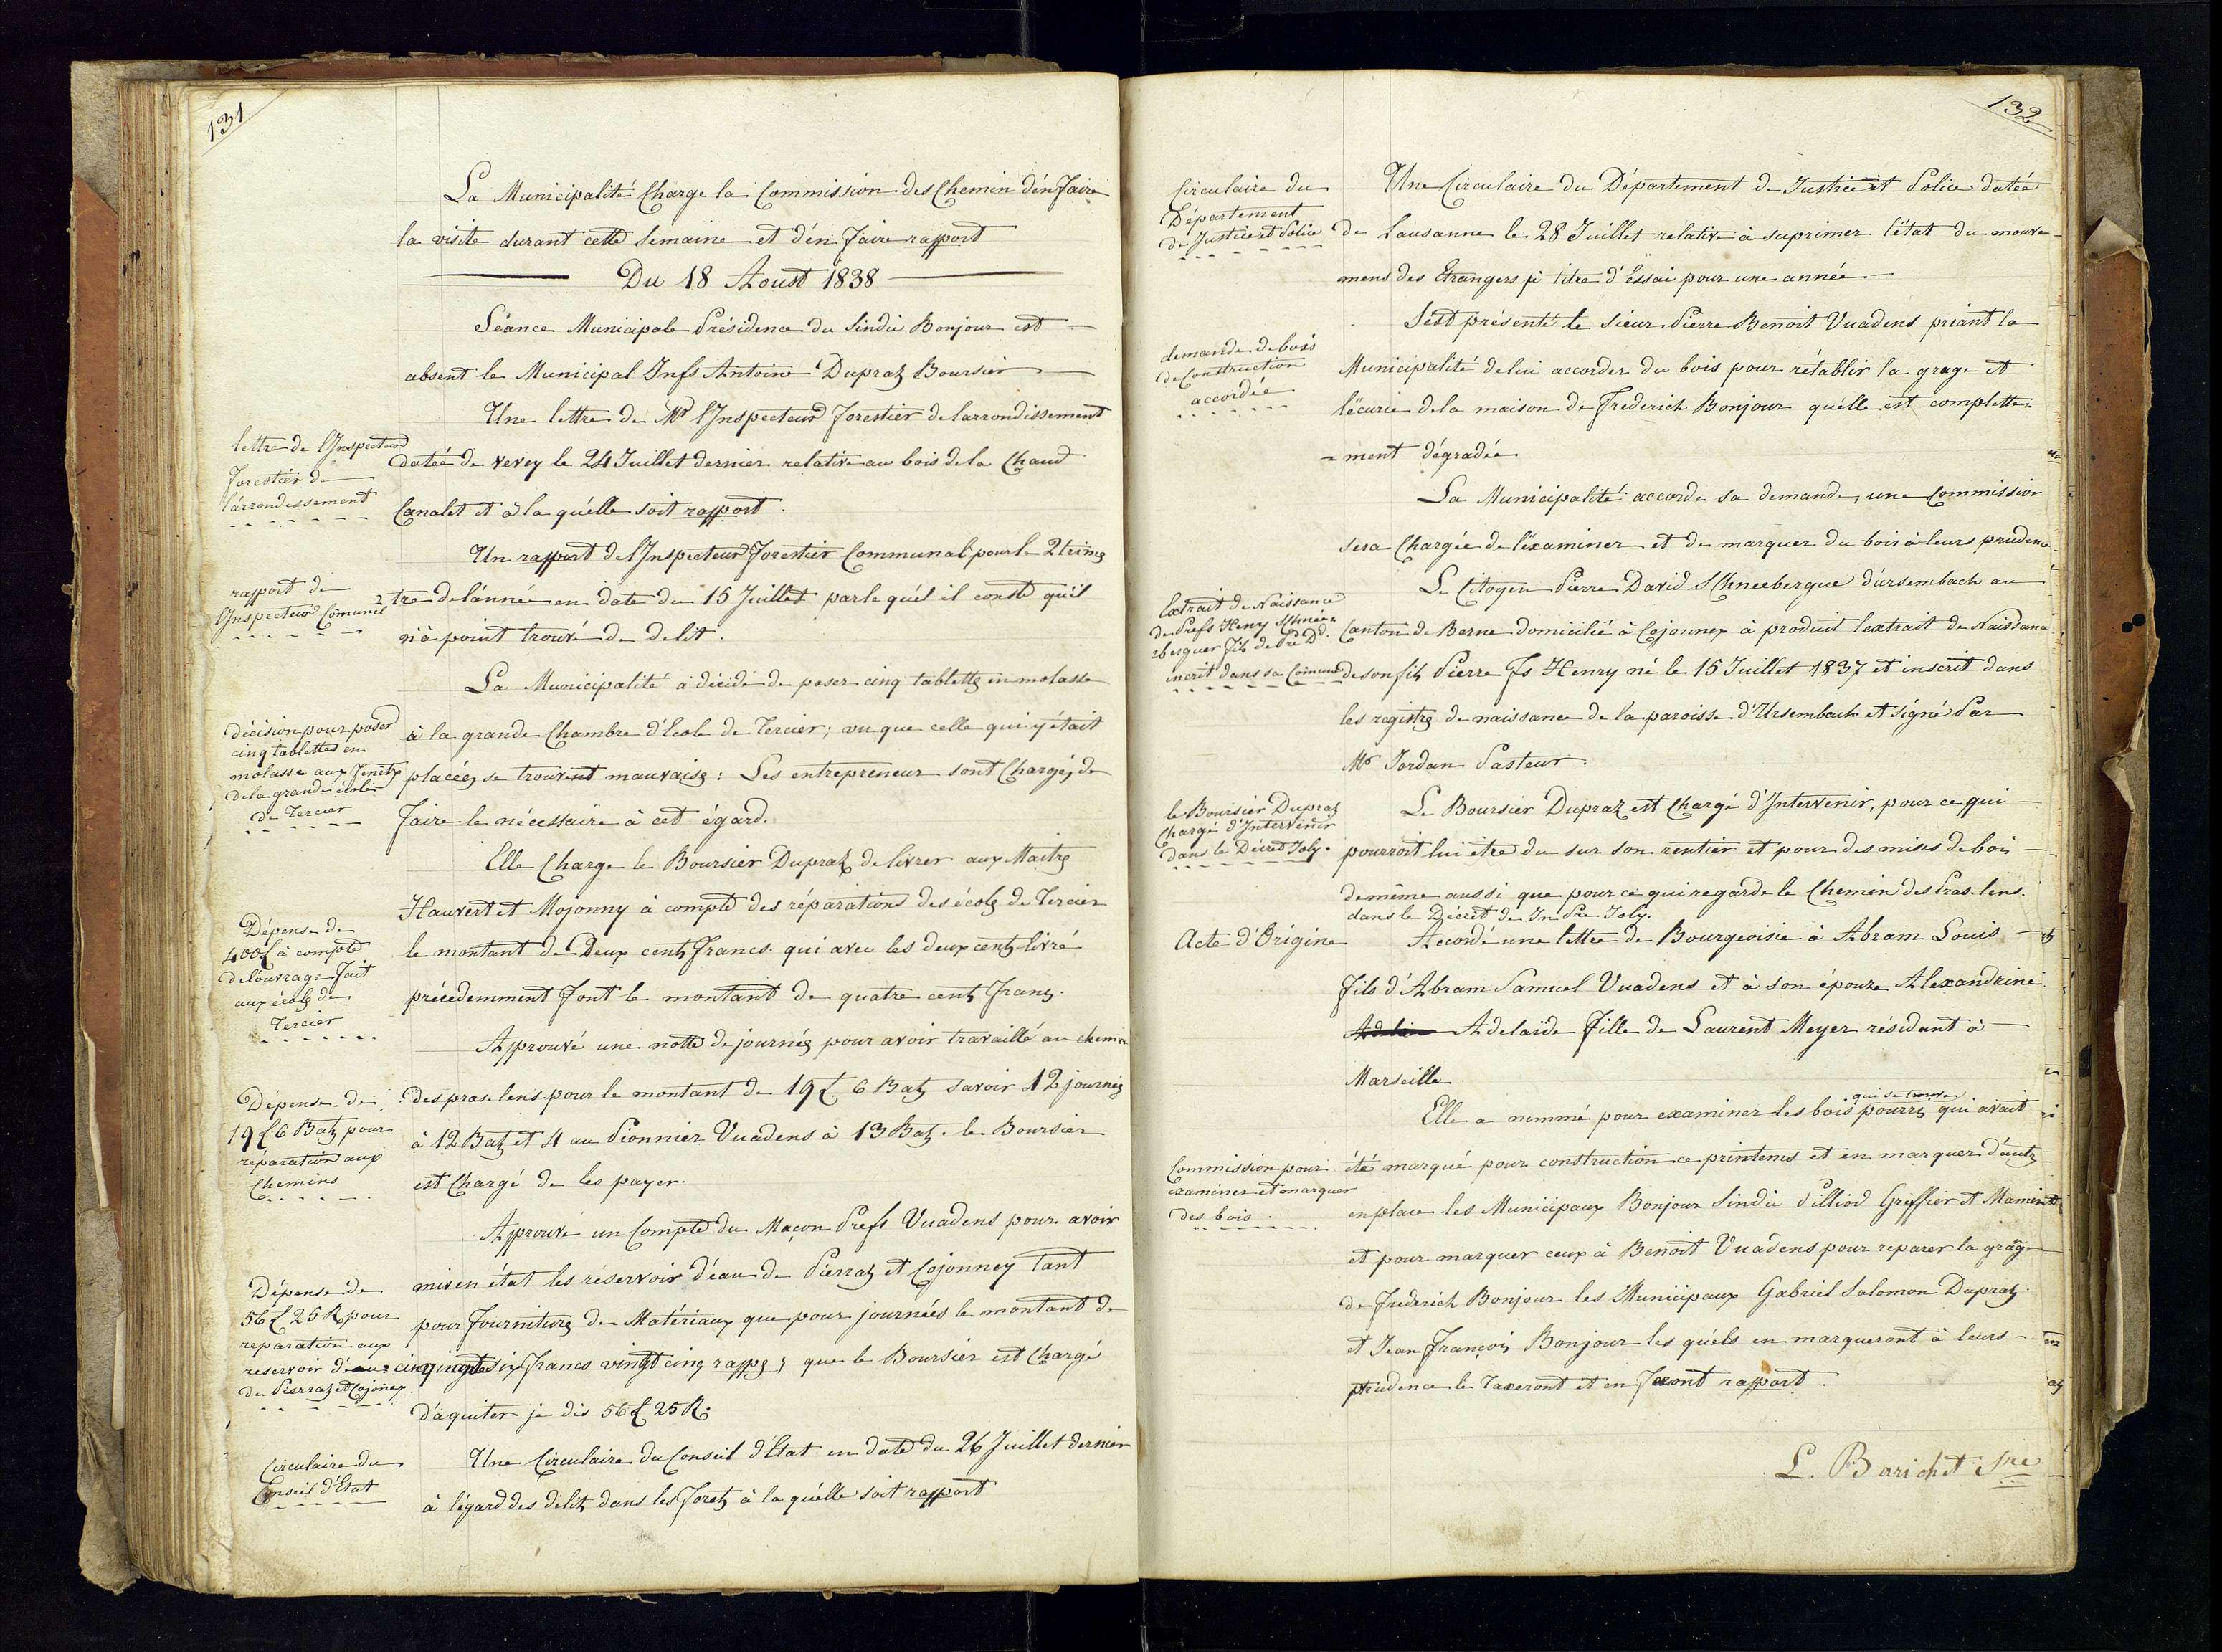 131
La Municipalité Charge la Commission des Chemin d'én faire
la visite durant cette semaine et d'én faire rapport
Du 18 Aoust 1838
Séance Municipale Présidence du Sindic Bonjour est
absent le Municipal Jnfs Antoine Dupraz Boursier
lettre de l'Jnspecteur
Forestier de
l'árrondissement
Une lettre de Mr l'Jnspecteur forestier de larrondissement
datée de vevey le 24 Juillet dernier relative au bois de la Chaud
Canalet et à la quélle soit rapport.
rapport de
l'Jnspecteur Comunél
Un rapport de l'Jnspecteur Forestier Communal pour le 2 trimes
tre de l'ánnée en date du 15 Juillet par le quél il conste qu'il
n'à point trouvé de delit.
décision pour poser
cinq tablettes en
molasse aux fenetx
de la grande école
de Tercier
La Municipalité à décidé de poser cinq tablettes en molasse
à la grande Chambre d'Ecole de Tercier; vu que celle qui y était
placées se trouvent mauvaises: Les entrepreneur sont Chargés de
faire le nécessaire à cet égard.
Dépense de
400 £ à compte
de l'óuvrage fait
aux écoles de
Tercier
Elle Charge le Boursier Dupraz de livrer aux Maitres
Hauvert et Mojonny à compte des réparations des écoles de Tercier
le montant de Deux cents francs qui avec les deux cents livré
précedemment font le montant de quatre cents francs.
Dépense de
19 £ 6 Batz pour
réparation aux
Chemins
Approuvé une notte de journées pour avoir travaillé au chemin
des pras. lens pour le montant de 19 £ 6 Batz savoir 12 journées
à 12 Batz et 4 au Pionnier Vuadens à 13 Batz. le Boursier
est Chargé de les payer.
Dépense de
56 £ 25 R pour
reparation aux
reservoir d'eau
de Pierraz et Cojonex.
Approuvé un Compte du Maçon Prefs Vuadens pour avoir
mis en état les réservoir d'eau de Pierraz et Cojonney tant
pour fournitures de Matériaux que pour journées le montant de
cinquante six francs vingt cinq rappes; que le Boursier est Chargé
d'aquiter je dis 56 £ 25 R.
Circulaire du
Conseil d'Etat
Une Circulaire du Conseil d'Etat en date du 26 Juillet dernier
à légard des délits dans les forets à la quélle soit rapport
132
Circulaire du
Département
de Justice et Police
Une Circulaire du Département de Justice et Police datée
de Lausanne le 28 Juillet relative à suprimer l'état du mouve
mens des Etrangers à titre d'Essai pour une année
demande de bois
de Construction
accordée
Sest présenté le sieur Pierre Benoit Vuadens priant la
Municipalité de lui accorder du bois pour rétablir la grage et
lécurie de la maison de Frederich Bonjour quélle est complette
ment dégradée
La Municipalité accorde sa demande, une Commission
sera Chargée de l'éxaminer et de marquer du bois à leurs prudence
Extrait de Naissance
de Prefs Henry Shnée
berguer fils de Pre Dd.
incrit dans sa Comune
Le Citoyen Pierre David SChneebergue d'ursembach au
Canton de Berne domicilié à Cojonnex à produit lextrait de Naissance
de son fils Pierre Fs Henry né le 15 Juillet 1837 et inscrit dans
les registres de naissance de la paroisse d'Ursembach et signé Par
Mr Jordan Pasteur.
le Boursier Dupraz
Chargé d'Intervenir
dans le Décret Joly.
Le Boursier Dupraz est Chargé d'Intervenir, pour ce qui
pourroit lui etre du sur son rentier et pour des mises de bois
de même aussi que pour ce qui regarde le Chemin des Pras. lens.
dans le Décret de Jn Pre Joly.
Acte d'Origine
Accordé une lettre de Bourgeoisie à Abram Louis
fils d'Abram Samuel Vuadens et à son épouze Alexandrine
Adelaïde fille de Laurent Meyer résidant à
Marseille
Commission pour
examiner et marquer
des bois.
qui se trouve
Elle a nommé pour examiner les bois pourris qui avait
été marqué pour construction ce printems et en marquer d'autres
en place les Municipaux Bonjour Sindic Pilliod Greffier et Mamin
et pour marquer ceux à Benoit Vuadens pour reparer la grage
de Frederich Bonjour les Municipaux Gabriel Salomon Dupraz
et Jean François Bonjour les quéls en marqueront à leurs
prudence le taxeront et en feront rapport.
L. Barichet Sre